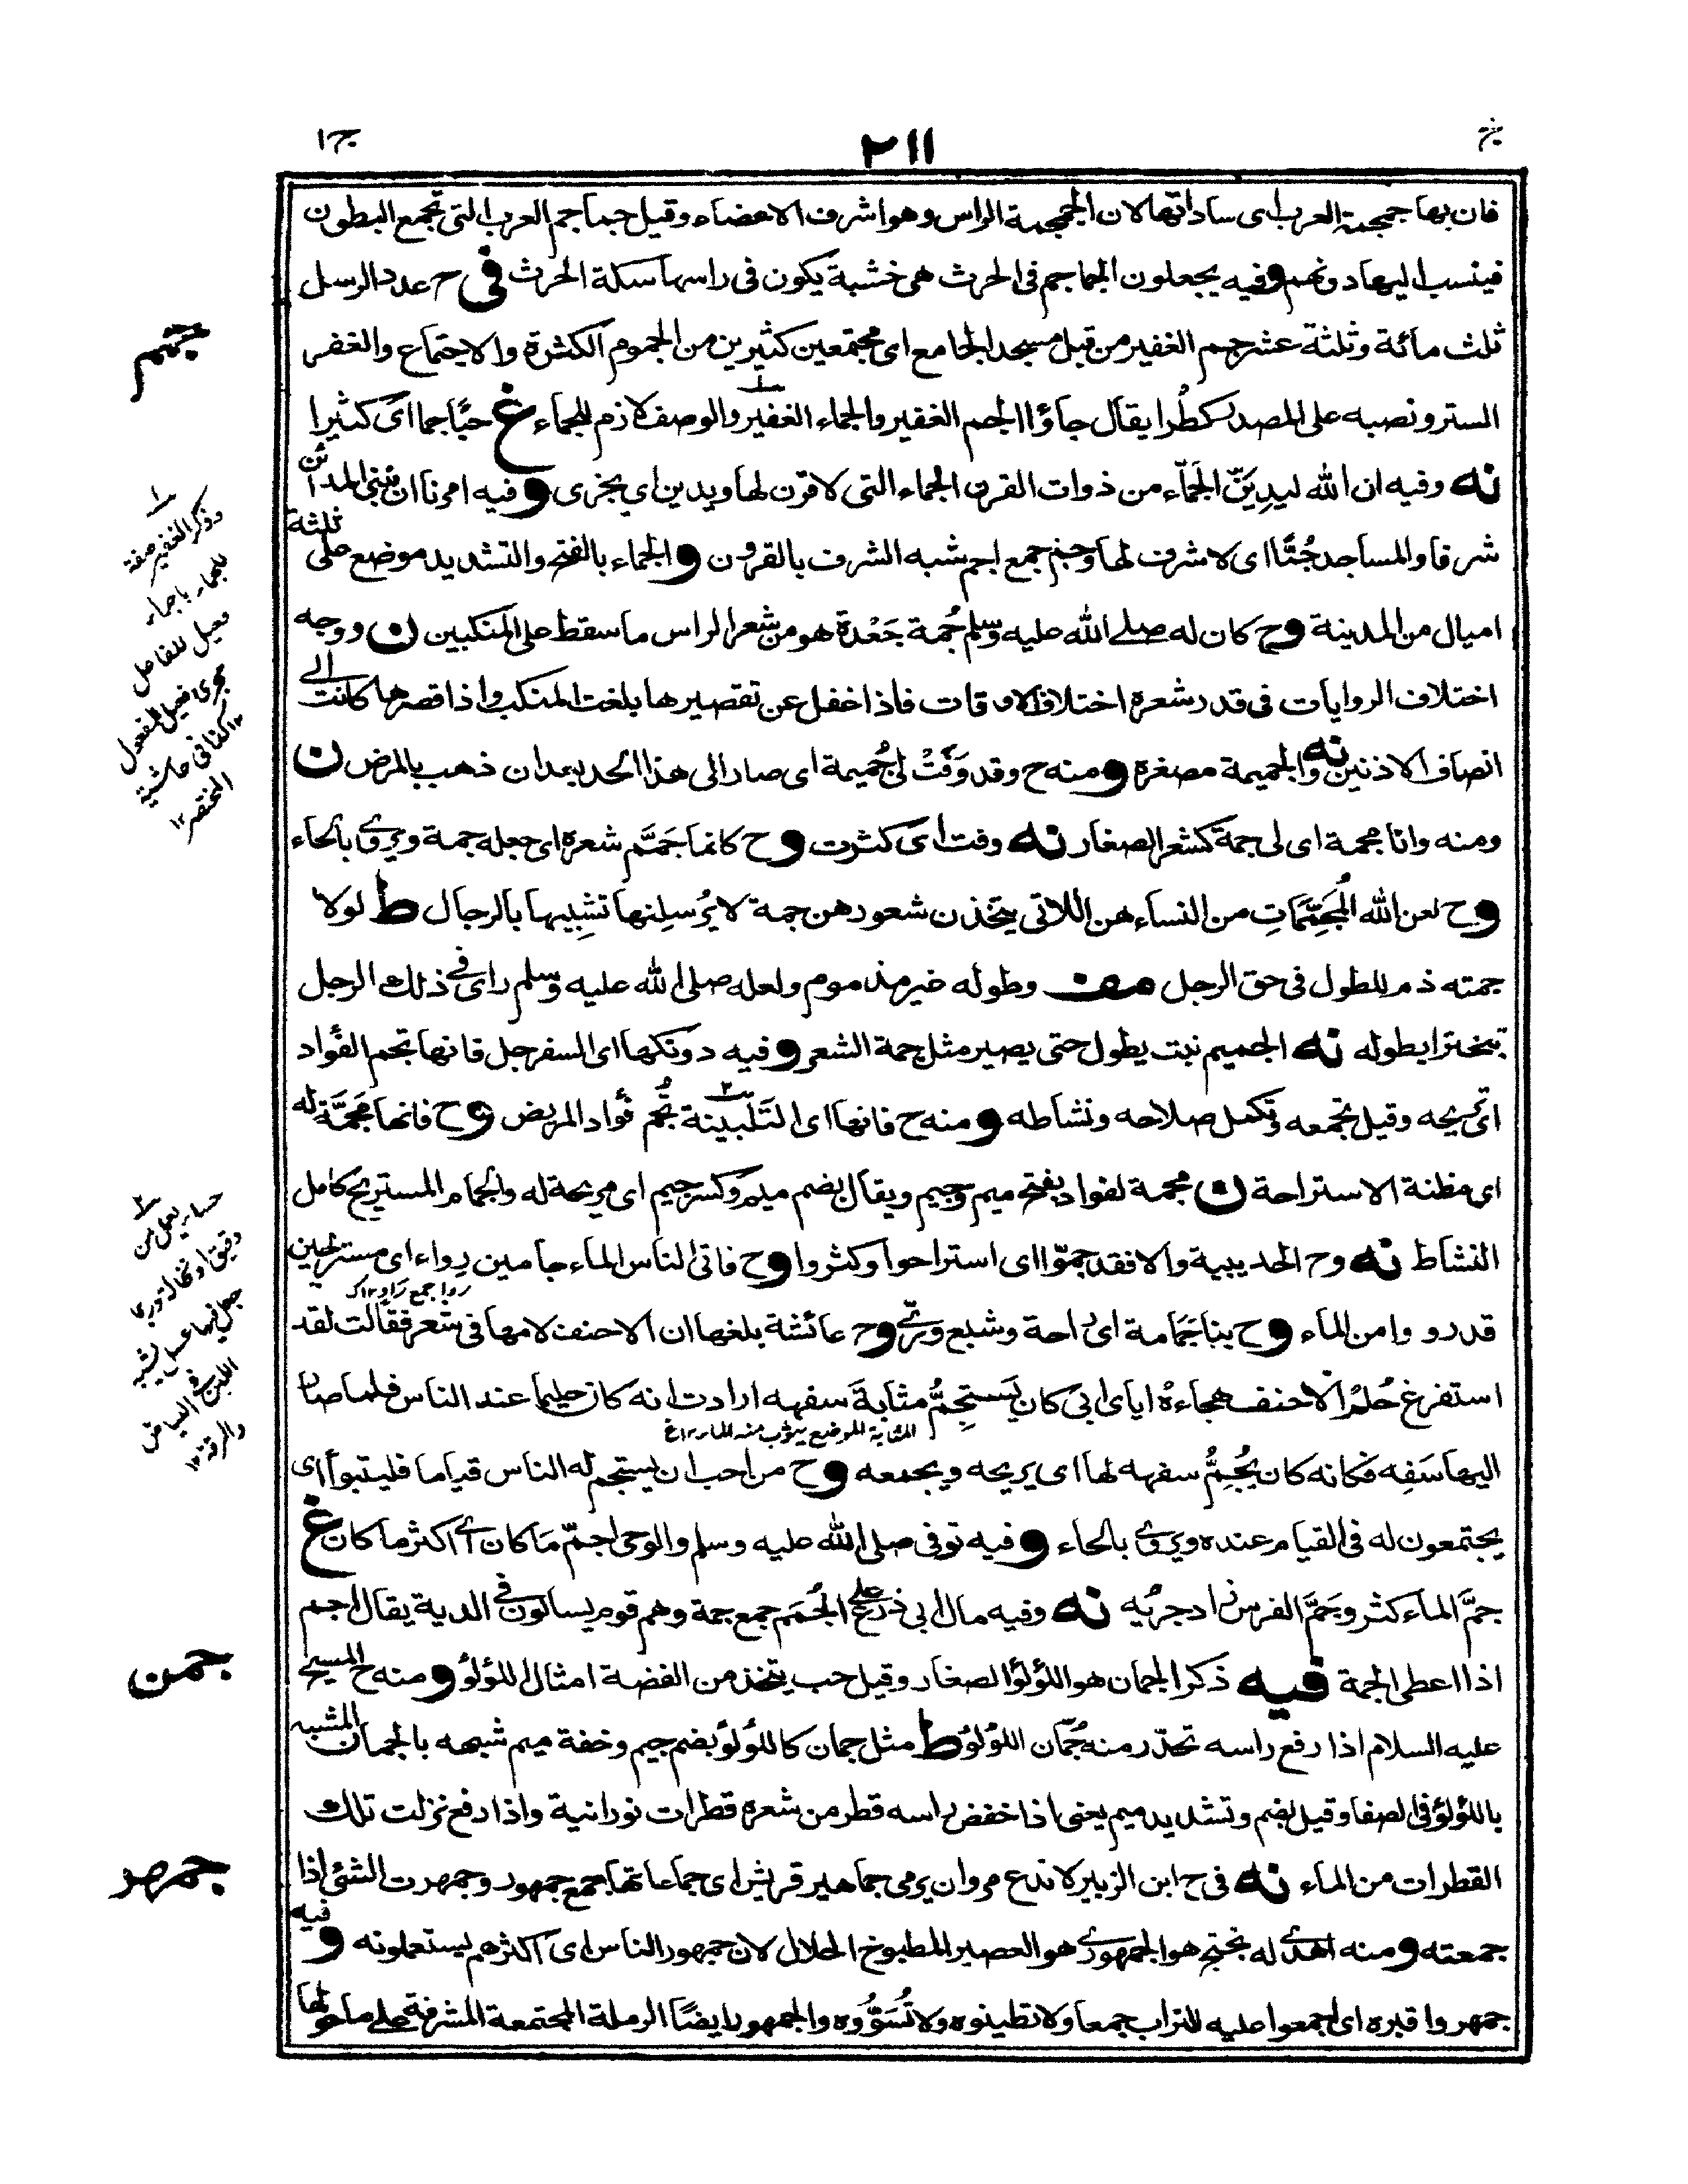 ج١
٢١١
فان بها جمجمة العرب اى ساداتها لان الجمجمة الراس وهو اشرف الاعضاء وقيل جماجم العرب التى تجمع البطون
فينسب اليها دونهم وفيه يجعلون الجماجم فى الحرث هى خشبة يكون فى راسها سكة الحرث فى ح عدد الرسل
ثلث مائة وثلثة عشر جم الغفير من قبل مسجد الجامع اى مجتمعين كثيرين من الجموم الكثرة والاجتماع والغفر
الستر ونصبه على المصدر كطرا يقال جاؤا الجم الغفير والجماء الغفير والوصف لازم للجماء غ حبا جما اى كثيرا
نه وفيه ان الله ليدين الجماء من ذوات القرن الجماء التى لا قرن لها ويدين اى يجزى وفيه امرنا ان نبنى المدائن
شرفا والمساجد جما اى لا شرف لها وجم جمع اجم شبه الشرف بالقرون والجماء بالفتح والتشديد موضع على ثلثة
اميال من المدينة وح كان له صلى الله عليه وسلم جمة جعدة هو من شعر الراس ما سقط على المنكبين ن ووجه
اختلاف الروايات فى قدر شعره اختلاف الاوقات فاذا غفل عن تقصيرها بلغت المنكب واذا قصرها كانت الى
انصاف الاذنين نه والجميمة مصغره ومنه ح وقد وفت لى جميمة اى صار الى هذا الحد بعد ان ذهب بالمرض ن
ومنه وانا مجممة اى لى جمة كشعر الصغار نه وفت اى كثرت وح كانما جمم شعره اى جعله جمة ويروى بالحاء
وح لعن الله المجممات من النساء هن اللاتى يتخذن شعورهن جمة لا يرسلنها تشبيها بالرجال ط لولا
جمته ذم للطول فى حق الرجل مف وطوله غير مذموم ولعله صلى الله عليه وسلم راى فى ذلك الرجل
تبخترا بطوله نه الجميم نبت يطول حتى يصير مثل جمة الشعر وفيه دونكها اى السفرجل فانها تجم الفؤاد
اى تريحه وقيل تجمعه وتكمل صلاحه ونشاطه ومنه ح فانها اى التلبينة تجم فؤاد المريض وح فانها مجمة له
اى مظنة الاستراحة ن مجمة لفواد بفتح ميم وجيم ويقال بضم ميم وكسر جيم اى مريحة له والجمام المستريح كامل
النشاط نه وح الحديبية والا فقد جموا اى استراحوا وكثروا وح فاتى الناس الماء جامين رواء اى مستريحين
رواء جمع راو ١٢ك
قد رووا من الماء وح بنا جمامة اى راحة وشبع ورى وح عائشة بلغها ان الاحنف لامها فى شعر فقالت لقد
استفرغ حلم الاحنف هجاءه اياى ابى كان يستجم مثابة سفهه ارادت انه كان حليما عند الناس فلما صار
المثابة الموضع يثوب منه الماء ١٢غ
اليها سفه فكانه كان يجم سفهه لها اى يريحه ويجمعه وح من احب ان يستجم له الناس قياما فليتبوأ اى
يجتمعون له فى القيام عنده ويروى بالحاء وفيه توفى صلى الله عليه وسلم والوحى اجم ما كان اى اكثر ما كان غ
جم الماء كثر وجم الفرس زاد جريه نه وفيه مال ابى ذرع على الجمم جمع جمة وهم قوم يسالون فى الدية يقال اجم
اذا اعطى الجمة فيه ذكر الجمان هو اللؤلؤ الصغار وقيل حب يتخذ من الفضة امثال اللؤلؤ ومنه ح المسيح
عليه السلام اذا رفع راسه تحدر منه جمان اللؤلؤ ط مثل جمان كاللؤلؤ بضم جيم وخفة ميم شبهه بالجمان المشبه
باللؤلؤ فى الصفا وقيل بضم وتشديد ميم يعنى اذا خفض راسه قطر من شعره قطرات نورانية واذا رفع نزلت تلك
القطرات من الماء نه فى ح ابن الزبير لا ندع مروان يرمى جماهير قريش اى جماعاتها جمع جمهور وجمهرت الشئ اذا
جمعته ومنه اهدى له بختج هو الجمهورى هو العصير المطبوخ الحلال لان جمهور الناس اى اكثرهم يستعملونه وفيه
جمهروا قبره اى اجمعوا عليه التراب جمعا ولا تطينوه ولا تسووه والجمهور ايضا الرملة المجتمعة المشرفة على ما حولها
جمم
١
وذكر الغفير صفة
للجماء
فعيل للفاعل
مجرى فعيل المفعول
كذا فى حاشية
المختصر ١٢
٢
حساء يعمل من
دقيق او نخالة وربما
جعل فيها عسل يشبه
اللبن فى البياض
والرقة ١٢
جمن
جمهر